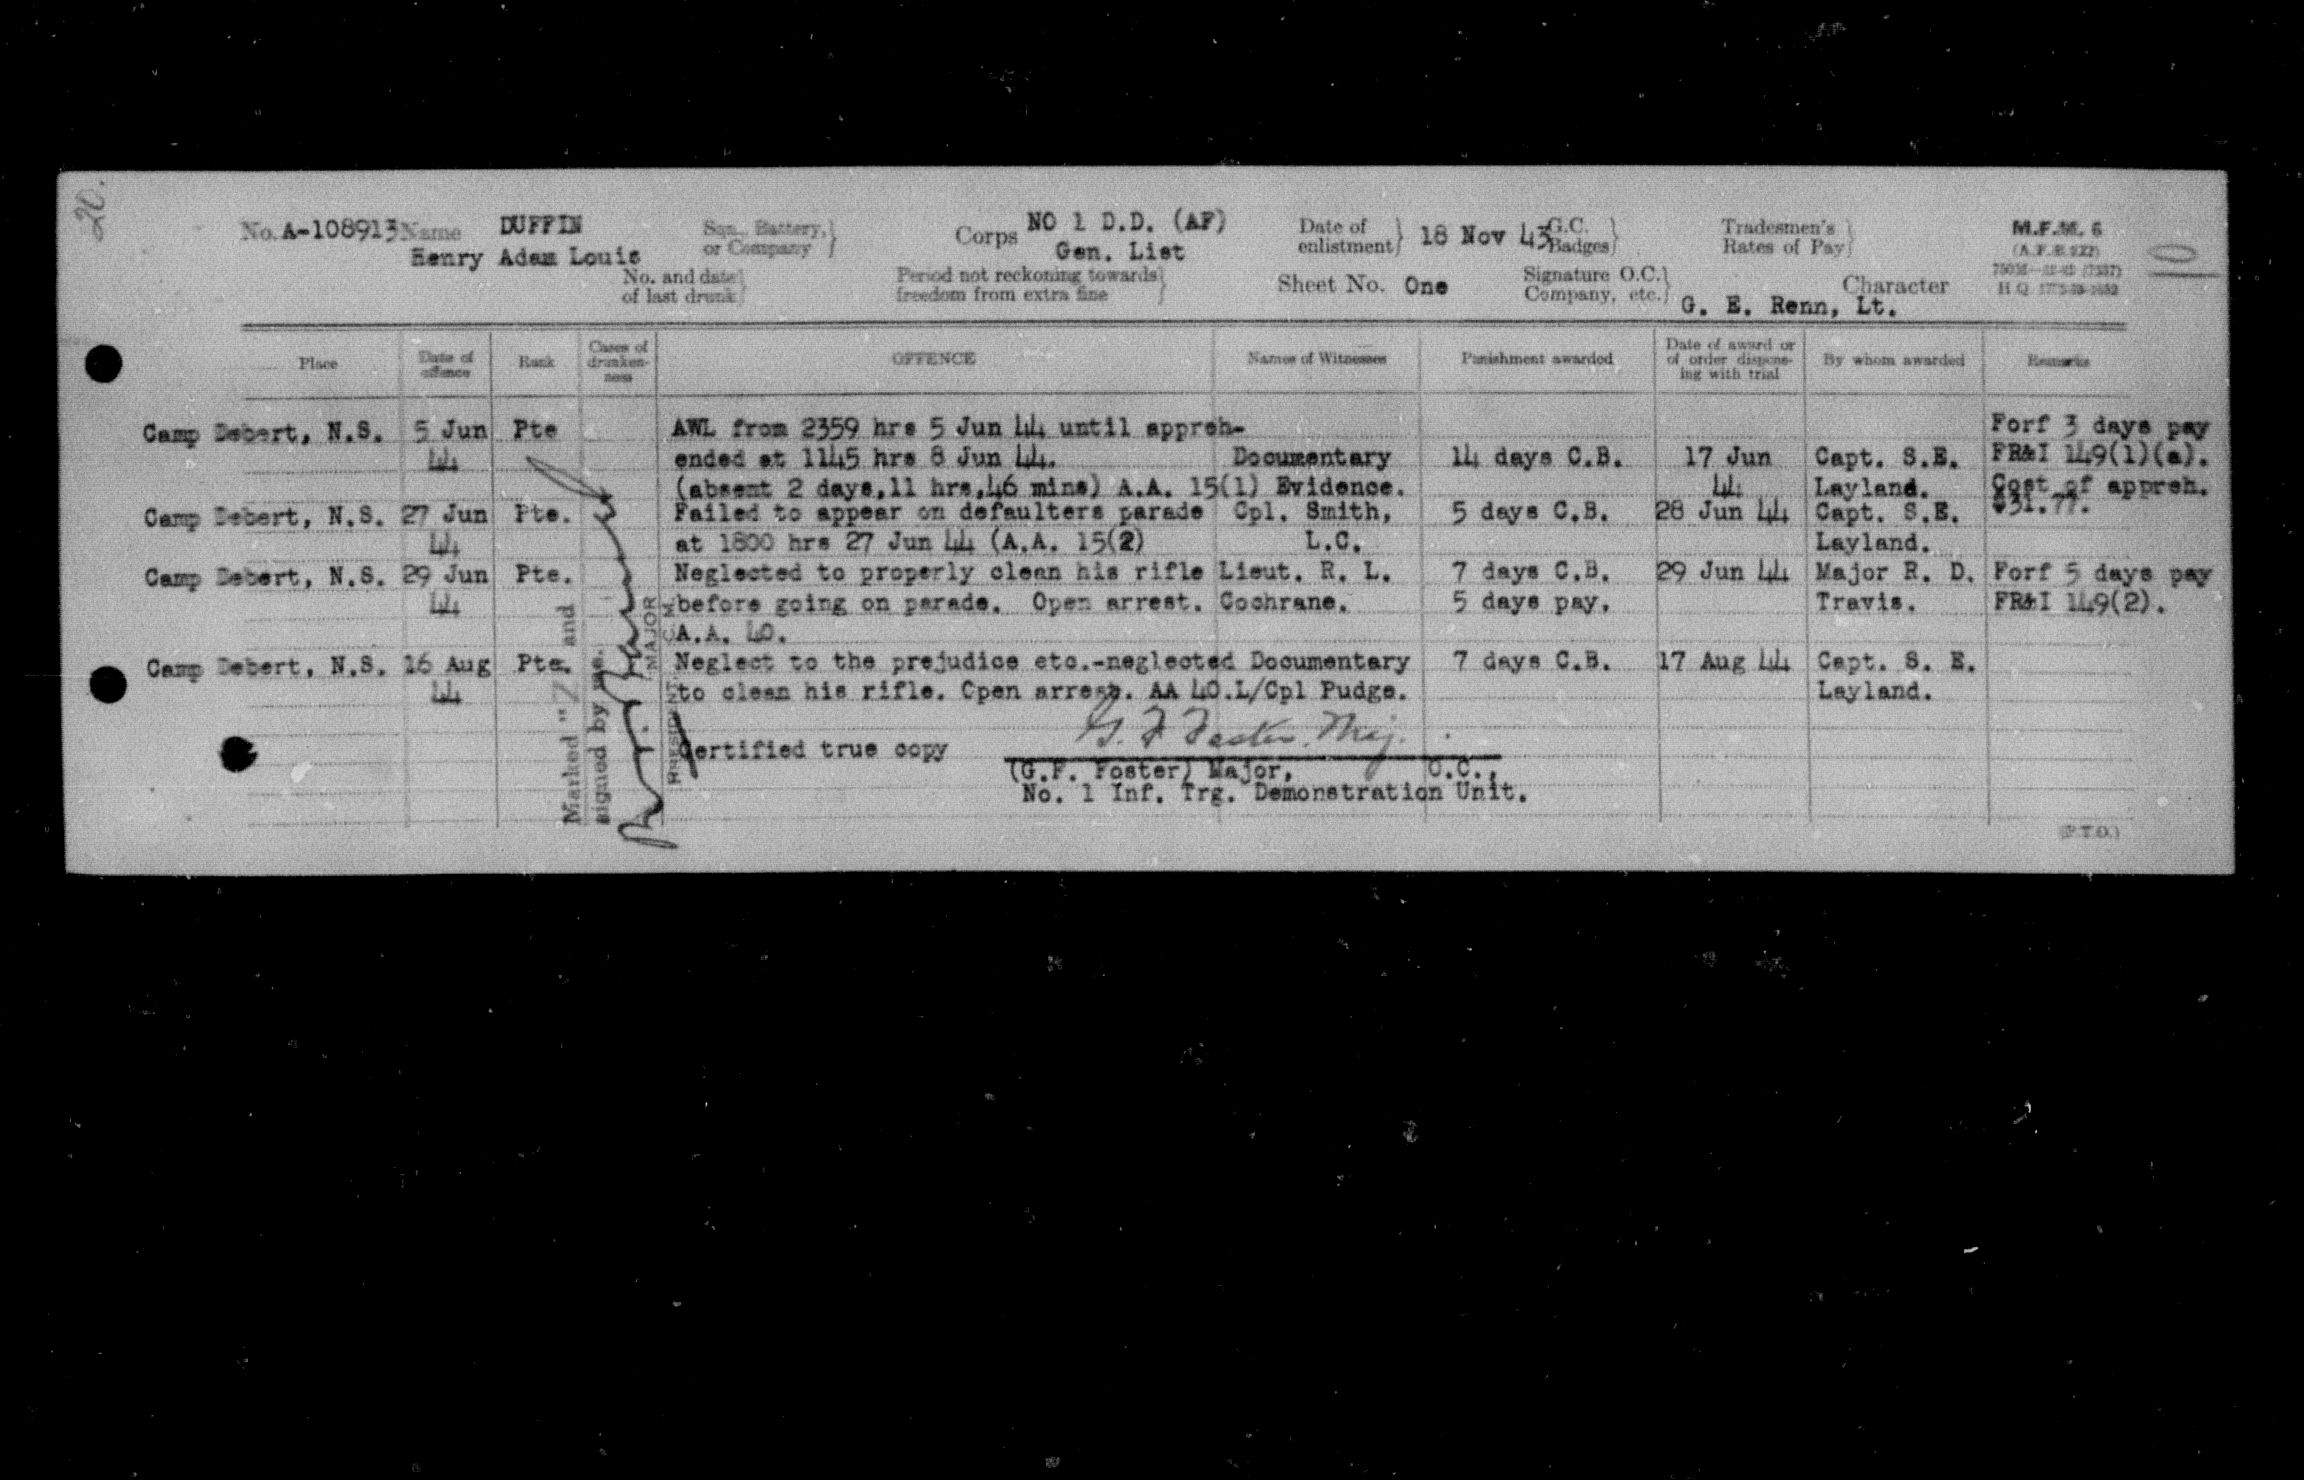 20.
No. A-108913 Name DUFFIN
Henry Adam Louis
Sqn., Battery,
or Company
Corps NO 1 D.D. (AF)
Gen. List
Date of
enlistment 18 Nov 43
G.C.
Badges
Tradesmen's
Rates of Pay
M.F.M. 6
10
No. and date
of last drunk
Period not reckoning towards
freedom from extra fine
Sheet No. One
Signature O.C.
Company, etc.
G. E. Renn, Lt.
Character
Place
Date of
offence
Rank
Cases of
drunken-
ness
OFFENCE
Names of Witnesses
Punishment awarded
Date of award or
of order dispens-
ing with trial
By whom awarded
Remarks
Camp Debert, N.S. 5 Jun Pte AWL from 2359 hrs 5 Jun 44 until appreh- Forf 3 days pay
44 ended at 1145 hrs 8 Jun 44. Documentary 14 days C.B. 17 Jun Capt. S.E. FR&I 149(1)(a).
(absent 2 days,11 hrs,46 mins) A.A. 15(1) Evidence. 44 Layland. Cost of appreh.
Camp Debert, N.S. 27 Jun Pte. Failed to appear on defaulters parade Cpl. Smith, 5 days C.B. 28 Jun 44 Capt. S.E. $31.77.
44 at 1800 hrs 27 Jun 44 (A.A. 15(2) L.C. Layland.
Camp Debert, N.S. 29 Jun Pte. Neglected to properly clean his rifle Lieut. R. L. 7 days C.B. 29 Jun 44 Major R. D. Forf 5 days pay
44 before going on parade. Open arrest. Cochrane. 5 days pay. Travis. FR&I 149(2).
A.A. 40.
Camp Debert, N.S. 16 Aug Pte. Neglect to the prejudice etc.-neglected Documentary 7 days C.B. 17 Aug 44 Capt. S. E.
44 to clean his rifle. Open arrest. AA 40.L/Cpl Pudge. Layland.
Marked "Z" and
signed by me.
MAJOR
PRESIDENT
G. F. Foster. Maj.
Certified true copy
(G.F. Foster) Major, O.C.,
No. 1 Inf. Trg. Demonstration Unit.
(P.T.O.)